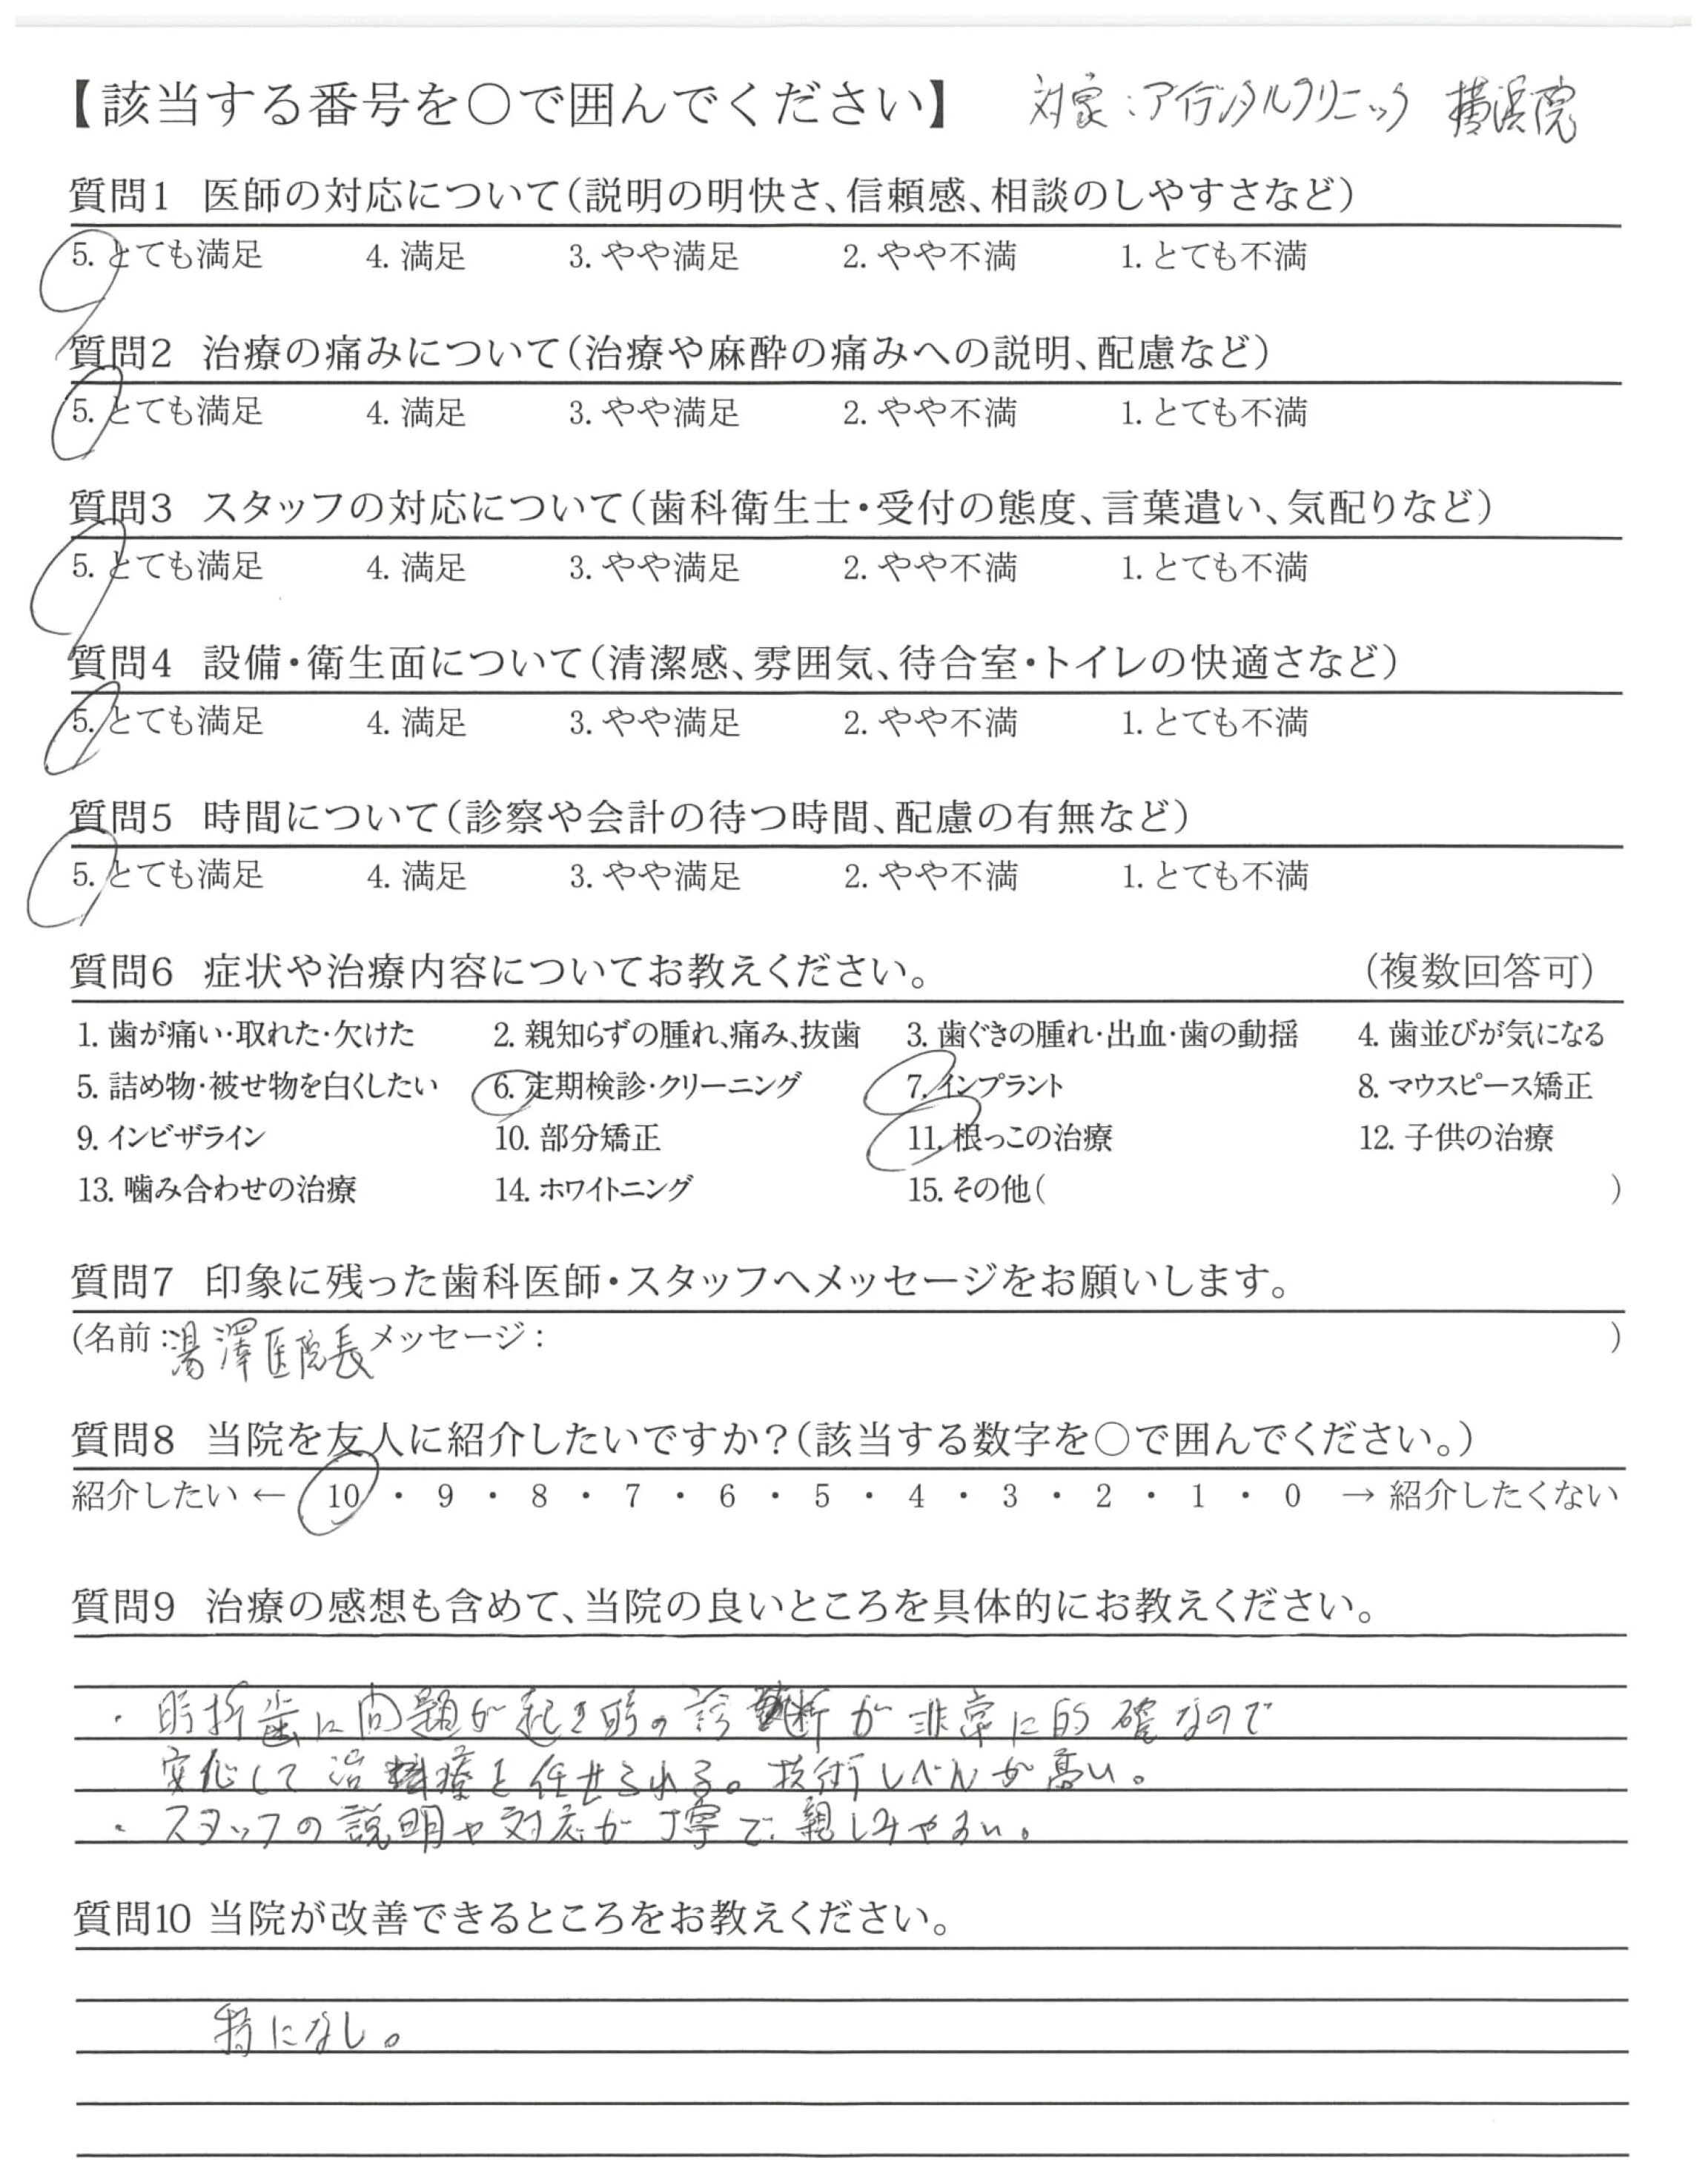 【該当する番号を○で囲んでください】 対象：アイデンタルクリニック 横浜院
質問1 医師の対応について(説明の明快さ、信頼感、相談のしやすさなど)
5. とても満足 4. 満足 3. やや満足 2. やや不満 1. とても不満
質問2 治療の痛みについて(治療や麻酔の痛みへの説明、配慮など)
5. とても満足 4. 満足 3. やや満足 2. やや不満 1. とても不満
質問3 スタッフの対応について(歯科衛生士・受付の態度、言葉遣い、気配りなど)
5. とても満足 4. 満足 3. やや満足 2. やや不満 1. とても不満
質問4 設備・衛生面について(清潔感、雰囲気、待合室・トイレの快適さなど)
5. とても満足 4. 満足 3. やや満足 2. やや不満 1. とても不満
質問5 時間について(診察や会計の待つ時間、配慮の有無など)
5. とても満足 4. 満足 3. やや満足 2. やや不満 1. とても不満
質問6 症状や治療内容についてお教えください。 (複数回答可)
1. 歯が痛い・取れた・欠けた 2. 親知らずの腫れ、痛み、抜歯 3. 歯ぐきの腫れ・出血・歯の動揺 4. 歯並びが気になる
5. 詰め物・被せ物を白くしたい 6. 定期検診・クリーニング 7. インプラント 8. マウスピース矯正
9. インビザライン 10. 部分矯正 11. 根っこの治療 12. 子供の治療
13. 噛み合わせの治療 14. ホワイトニング 15. その他( )
質問7 印象に残った歯科医師・スタッフへメッセージをお願いします。
(名前：湯澤医院長 メッセージ： )
質問8 当院を友人に紹介したいですか？(該当する数字を○で囲んでください。)
紹介したい ← 10 ・ 9 ・ 8 ・ 7 ・ 6 ・ 5 ・ 4 ・ 3 ・ 2 ・ 1 ・ 0 → 紹介したくない
質問9 治療の感想も含めて、当院の良いところを具体的にお教えください。
・ 時折歯に問題が起き時の診断が非常に的確なので
安心して治療を任せられる。技術レベルが高い。
・ スタッフの説明や対応が丁寧で親しみやすい。
質問10 当院が改善できるところをお教えください。
特になし。